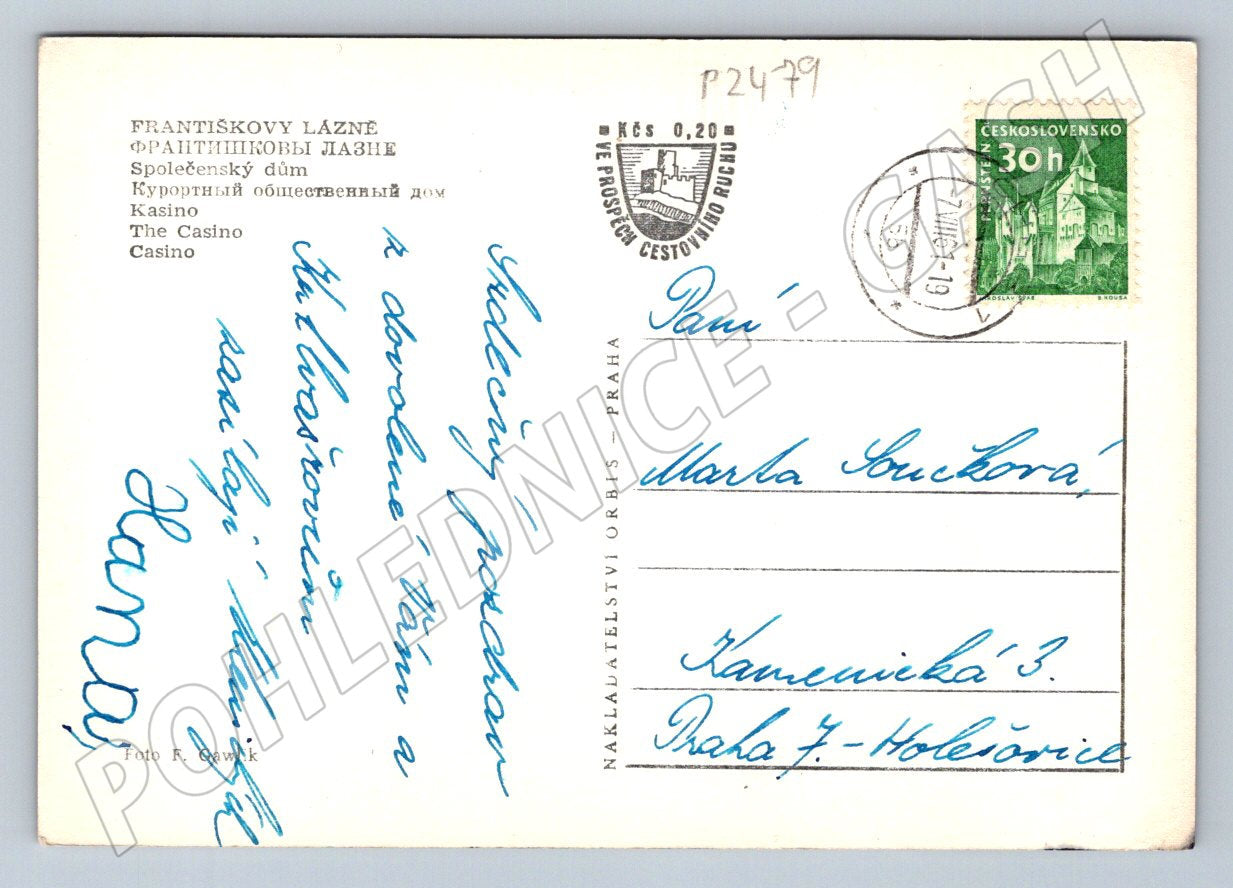 P2479
FRANTIŠKOVY LÁZNĚ
ФРАНТИШКОВЫ ЛАЗНЕ
Společenský dům
Курортный общественный дом
Kasino
The Casino
Casino
Kčs 0,20
VE PROSPĚCH CESTOVNÍHO RUCHU
ČESKOSLOVENSKO
30h
JAROSLAV ŠVÁB
B. KOUSA
-7.VIII.61-19
Srdečný pozdrav
z dovolené Vám a
Kutlvašrovům
zasílají
Hana,
Paní
Marta Součková,
Kamenická 3.
Praha 7. - Holešovice
NAKLADATELSTVÍ ORBIS – PRAHA
Foto F. Gawlik
POHLEDNICE - CACH